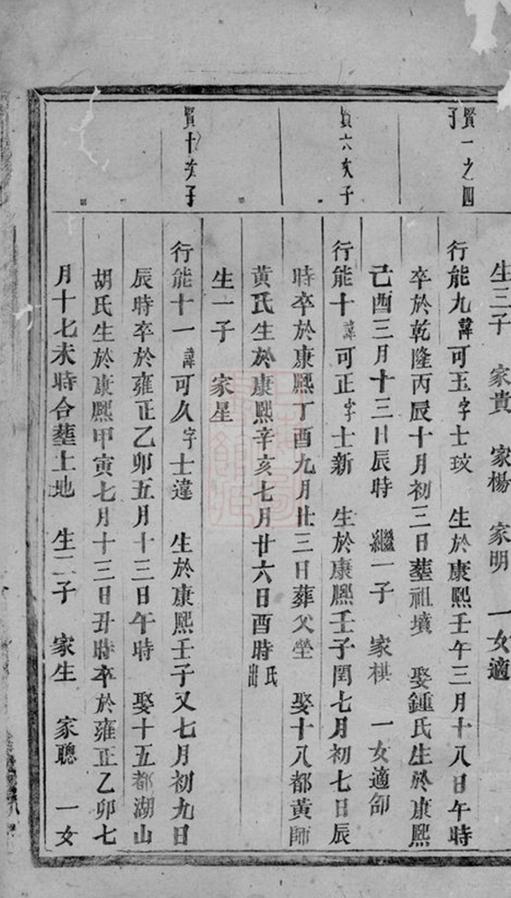 生三子　家貴　家楊　家明　一女適
賢一之四子
行能九諱可玉字士玟　生於康熙壬午三月十八日午時
卒於乾隆丙辰十月初三日塟祖墳　娶鍾氏生於康熙
己酉三月十三日辰時　繼一子　家棋　一女適
賢六次子
行能十諱可正字士新　生於康熙壬子閏七月初七日辰
時卒於康熙丁酉九月廿三日葬父塋　娶十八都黃師
黃氏生於康熙辛亥七月廿六日酉時氏出
生一子　家星
賢十次子
行能十一諱可久字士達　生於康熙壬子又七月初九日
辰時卒於雍正乙卯五月十三日午時　娶十五都湖山
胡氏生於康熙甲寅七月十三日丑時卒於雍正乙卯七
月十七未時合塟土地　生二子　家生　家聰　一女